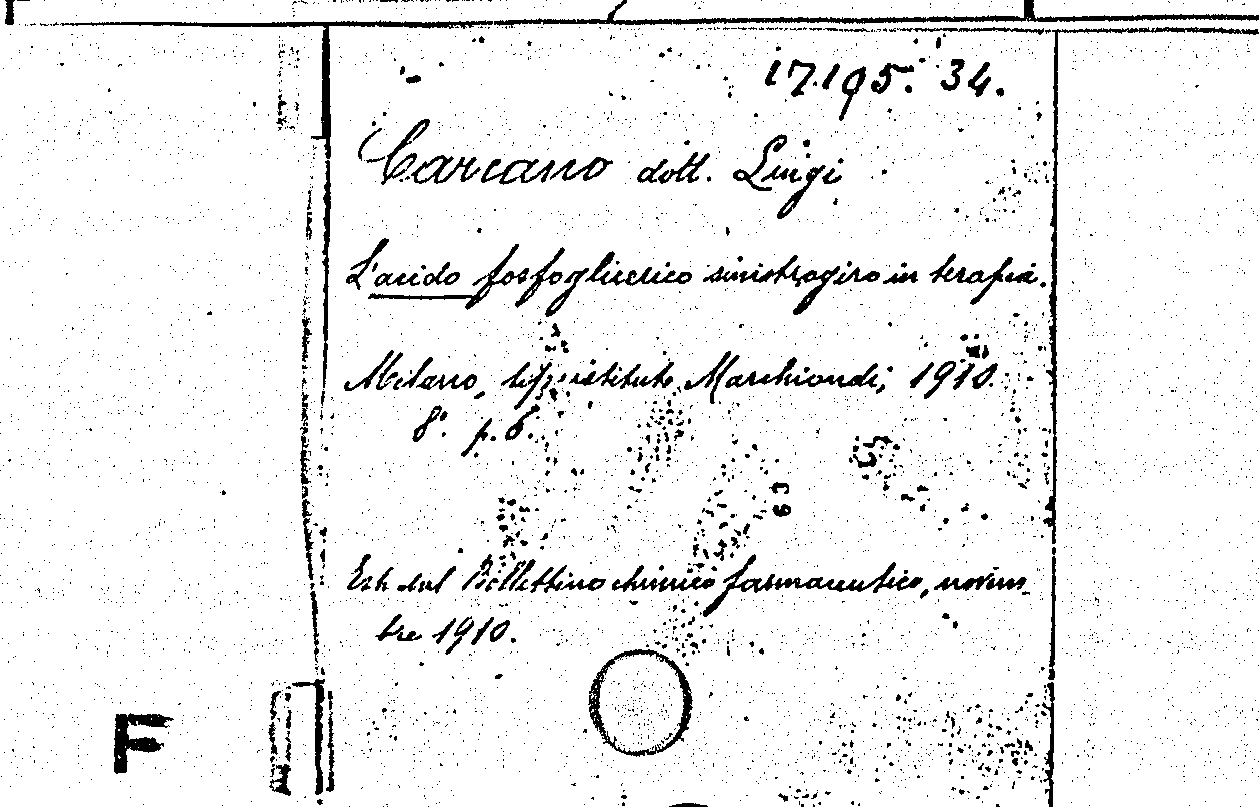 17.195. 34.
Carcano dott. Luigi
L'acido fosfoglicerico sinistrogiro in terapia.
Milano, tip. istituto Marchiondi, 1910.
8° p. 6.
63
Estr. dal Bollettino chimico farmaceutico, novem-
bre 1910.
F